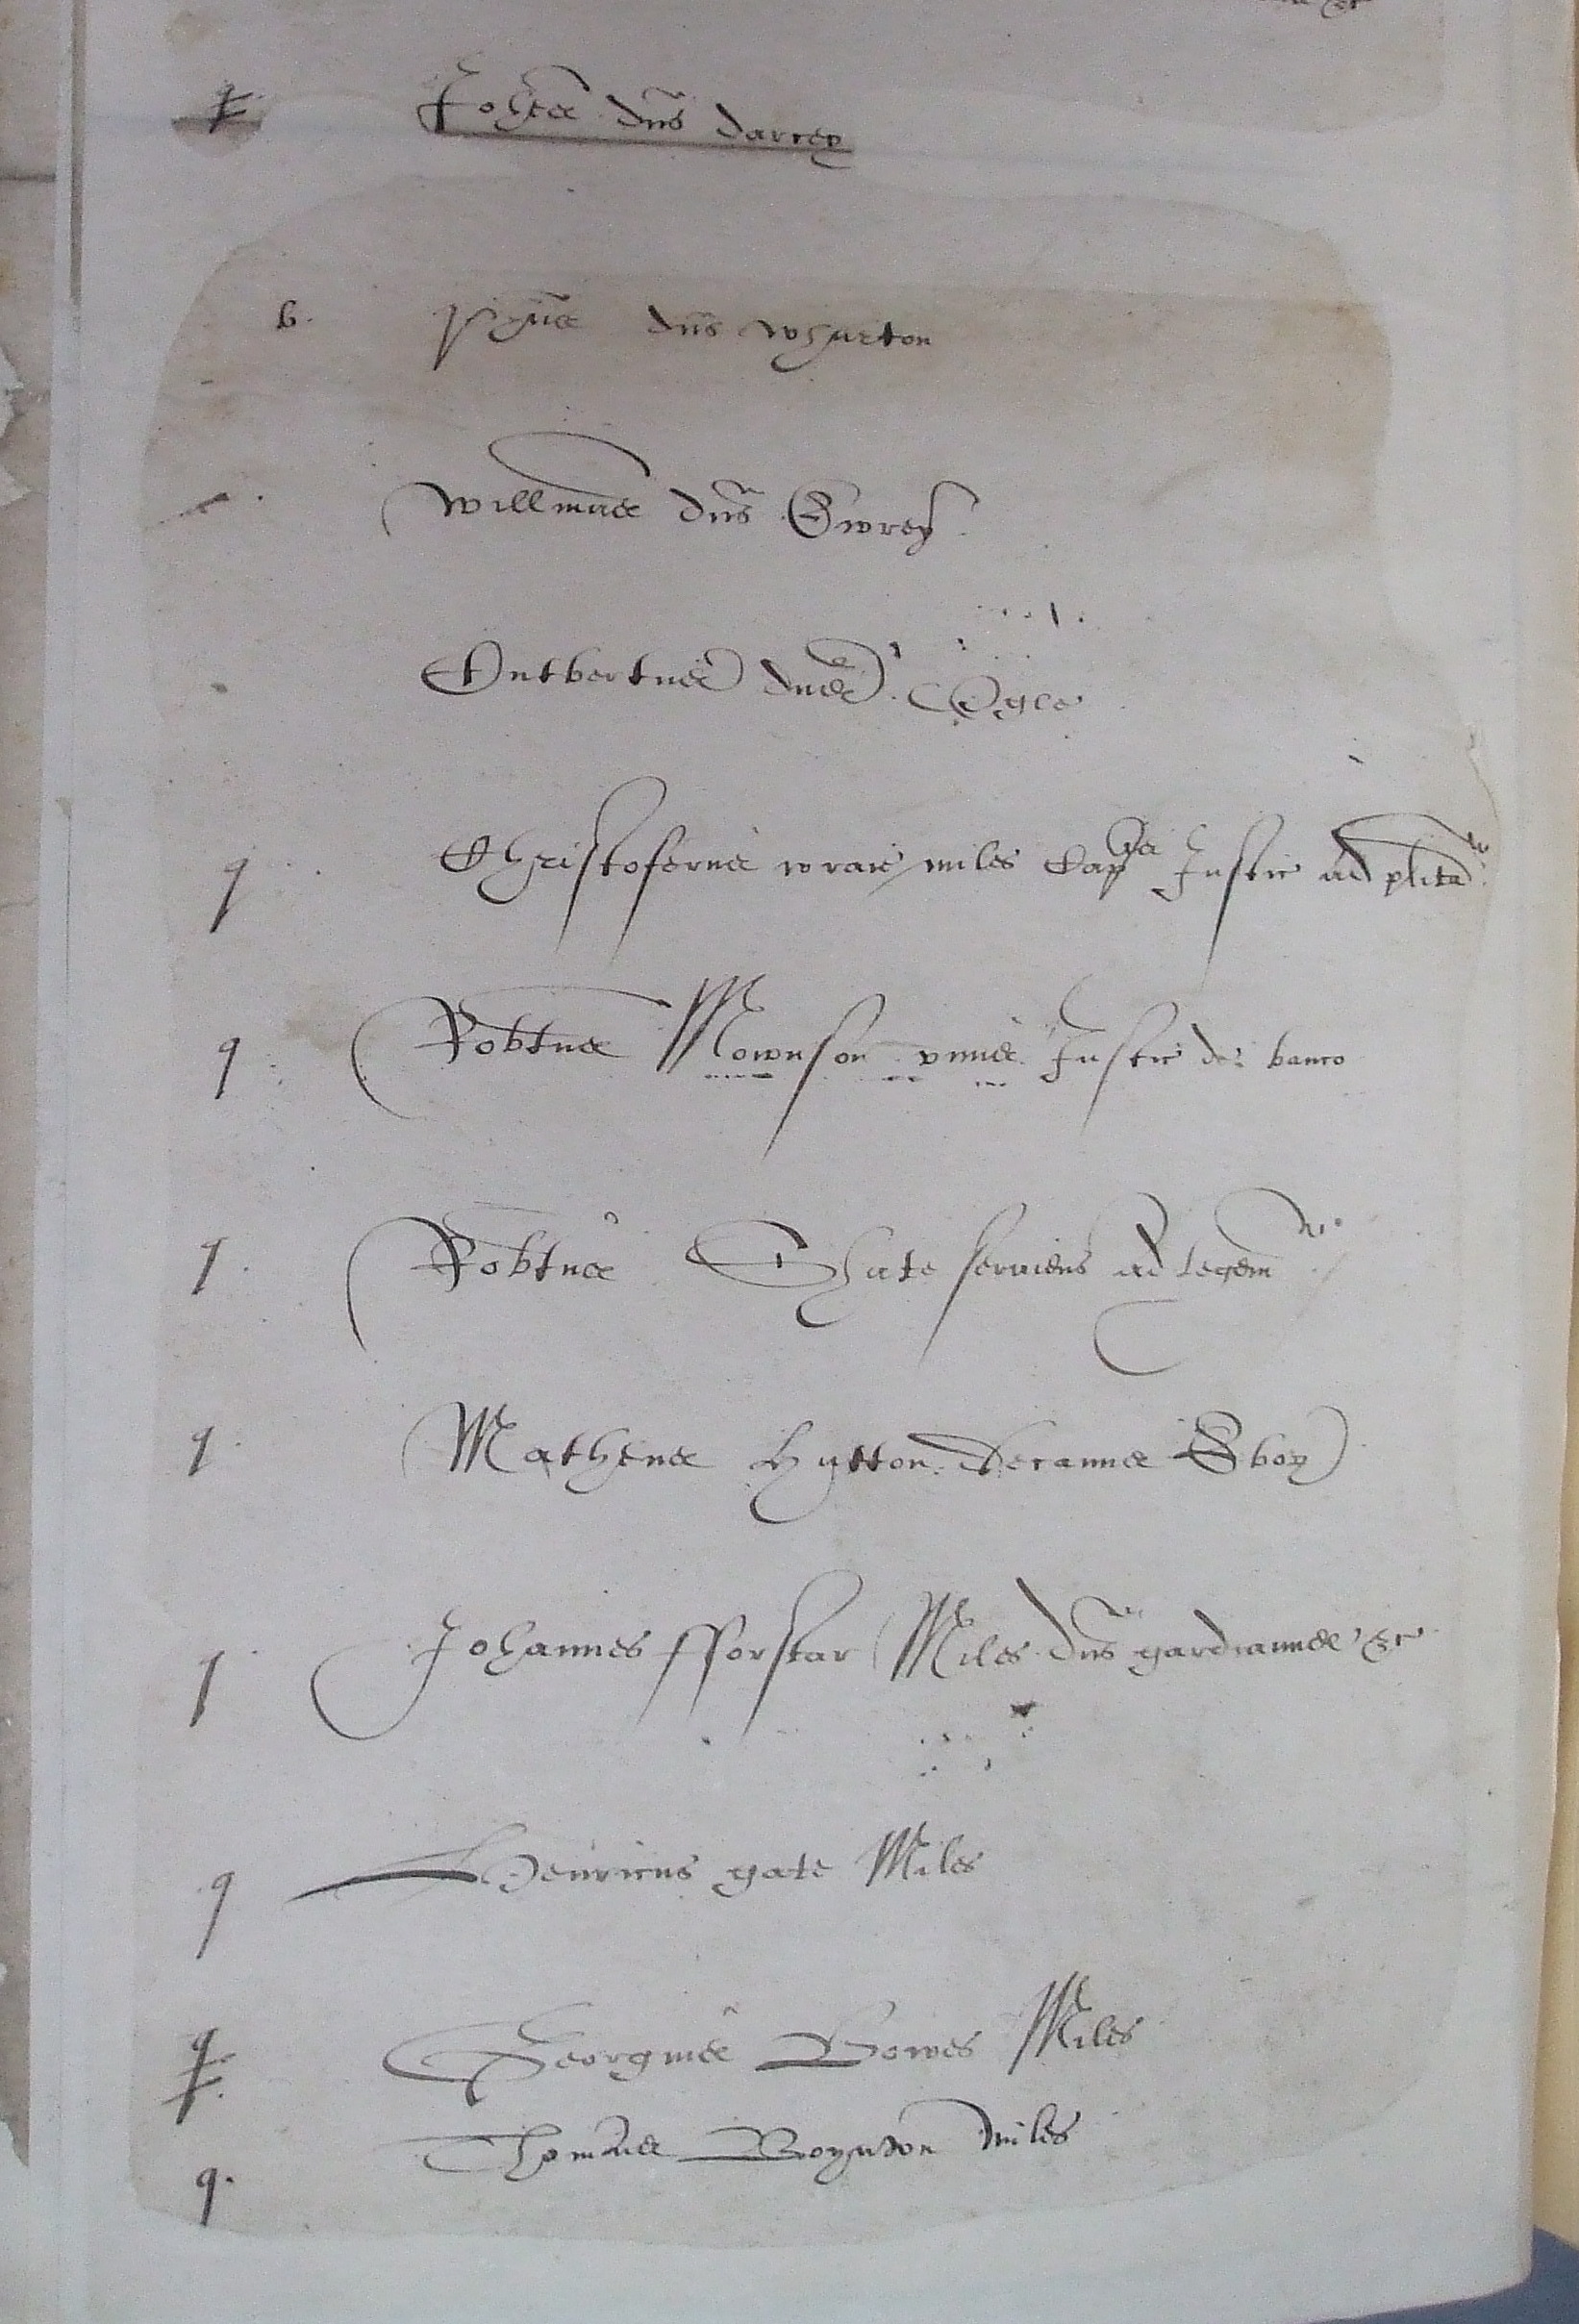 q Johes dns darcey
b. Phus dns wharton
Willmus dns Ewrey
Cutbertus dns Ogle
q Christoferus wraie miles Cap lis Justic ad plita
q Robtus Mownson vnus Justic de banco
q Robtus Shute serviens ad legem
q Matheus Hutton Decanus Ebor
q Johannes fforstar Miles dns gardianus &c
q Henricus gate Miles
q Georgius Bowes Miles
q. Thomas Boynton miles